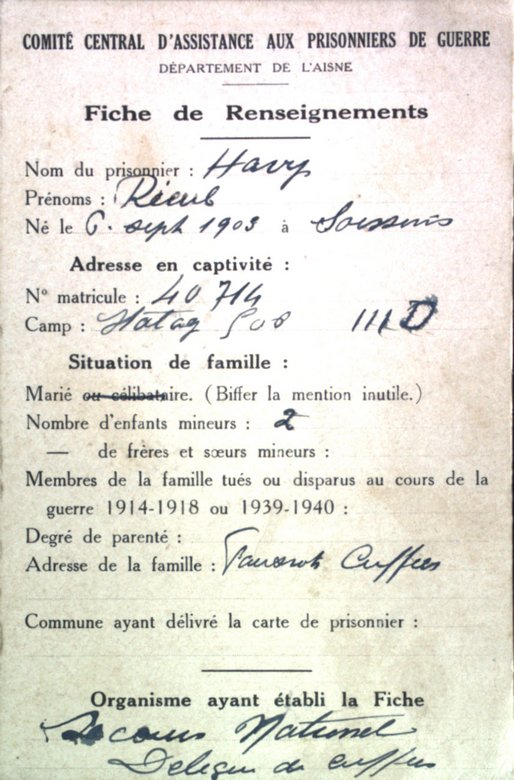 COMITÉ CENTRAL D'ASSISTANCE AUX PRISONNIERS DE GUERRE
DÉPARTEMENT DE L'AISNE
Fiche de Renseignements
Nom du prisonnier : Havy
Prénoms :
Né le 6 sept 1903 à Soissons
Adresse en captivité :
N° matricule : 40 714
Camp : Stalag III D
Situation de famille :
Marié ou célibataire. (Biffer la mention inutile.)
Nombre d'enfants mineurs : 2
— de frères et sœurs mineurs :
Membres de la famille tués ou disparus au cours de la
guerre 1914-1918 ou 1939-1940 :
Degré de parenté :
Adresse de la famille : Cuffies
Commune ayant délivré la carte de prisonnier :
Organisme ayant établi la Fiche
Secours National
Délégué de Cuffies